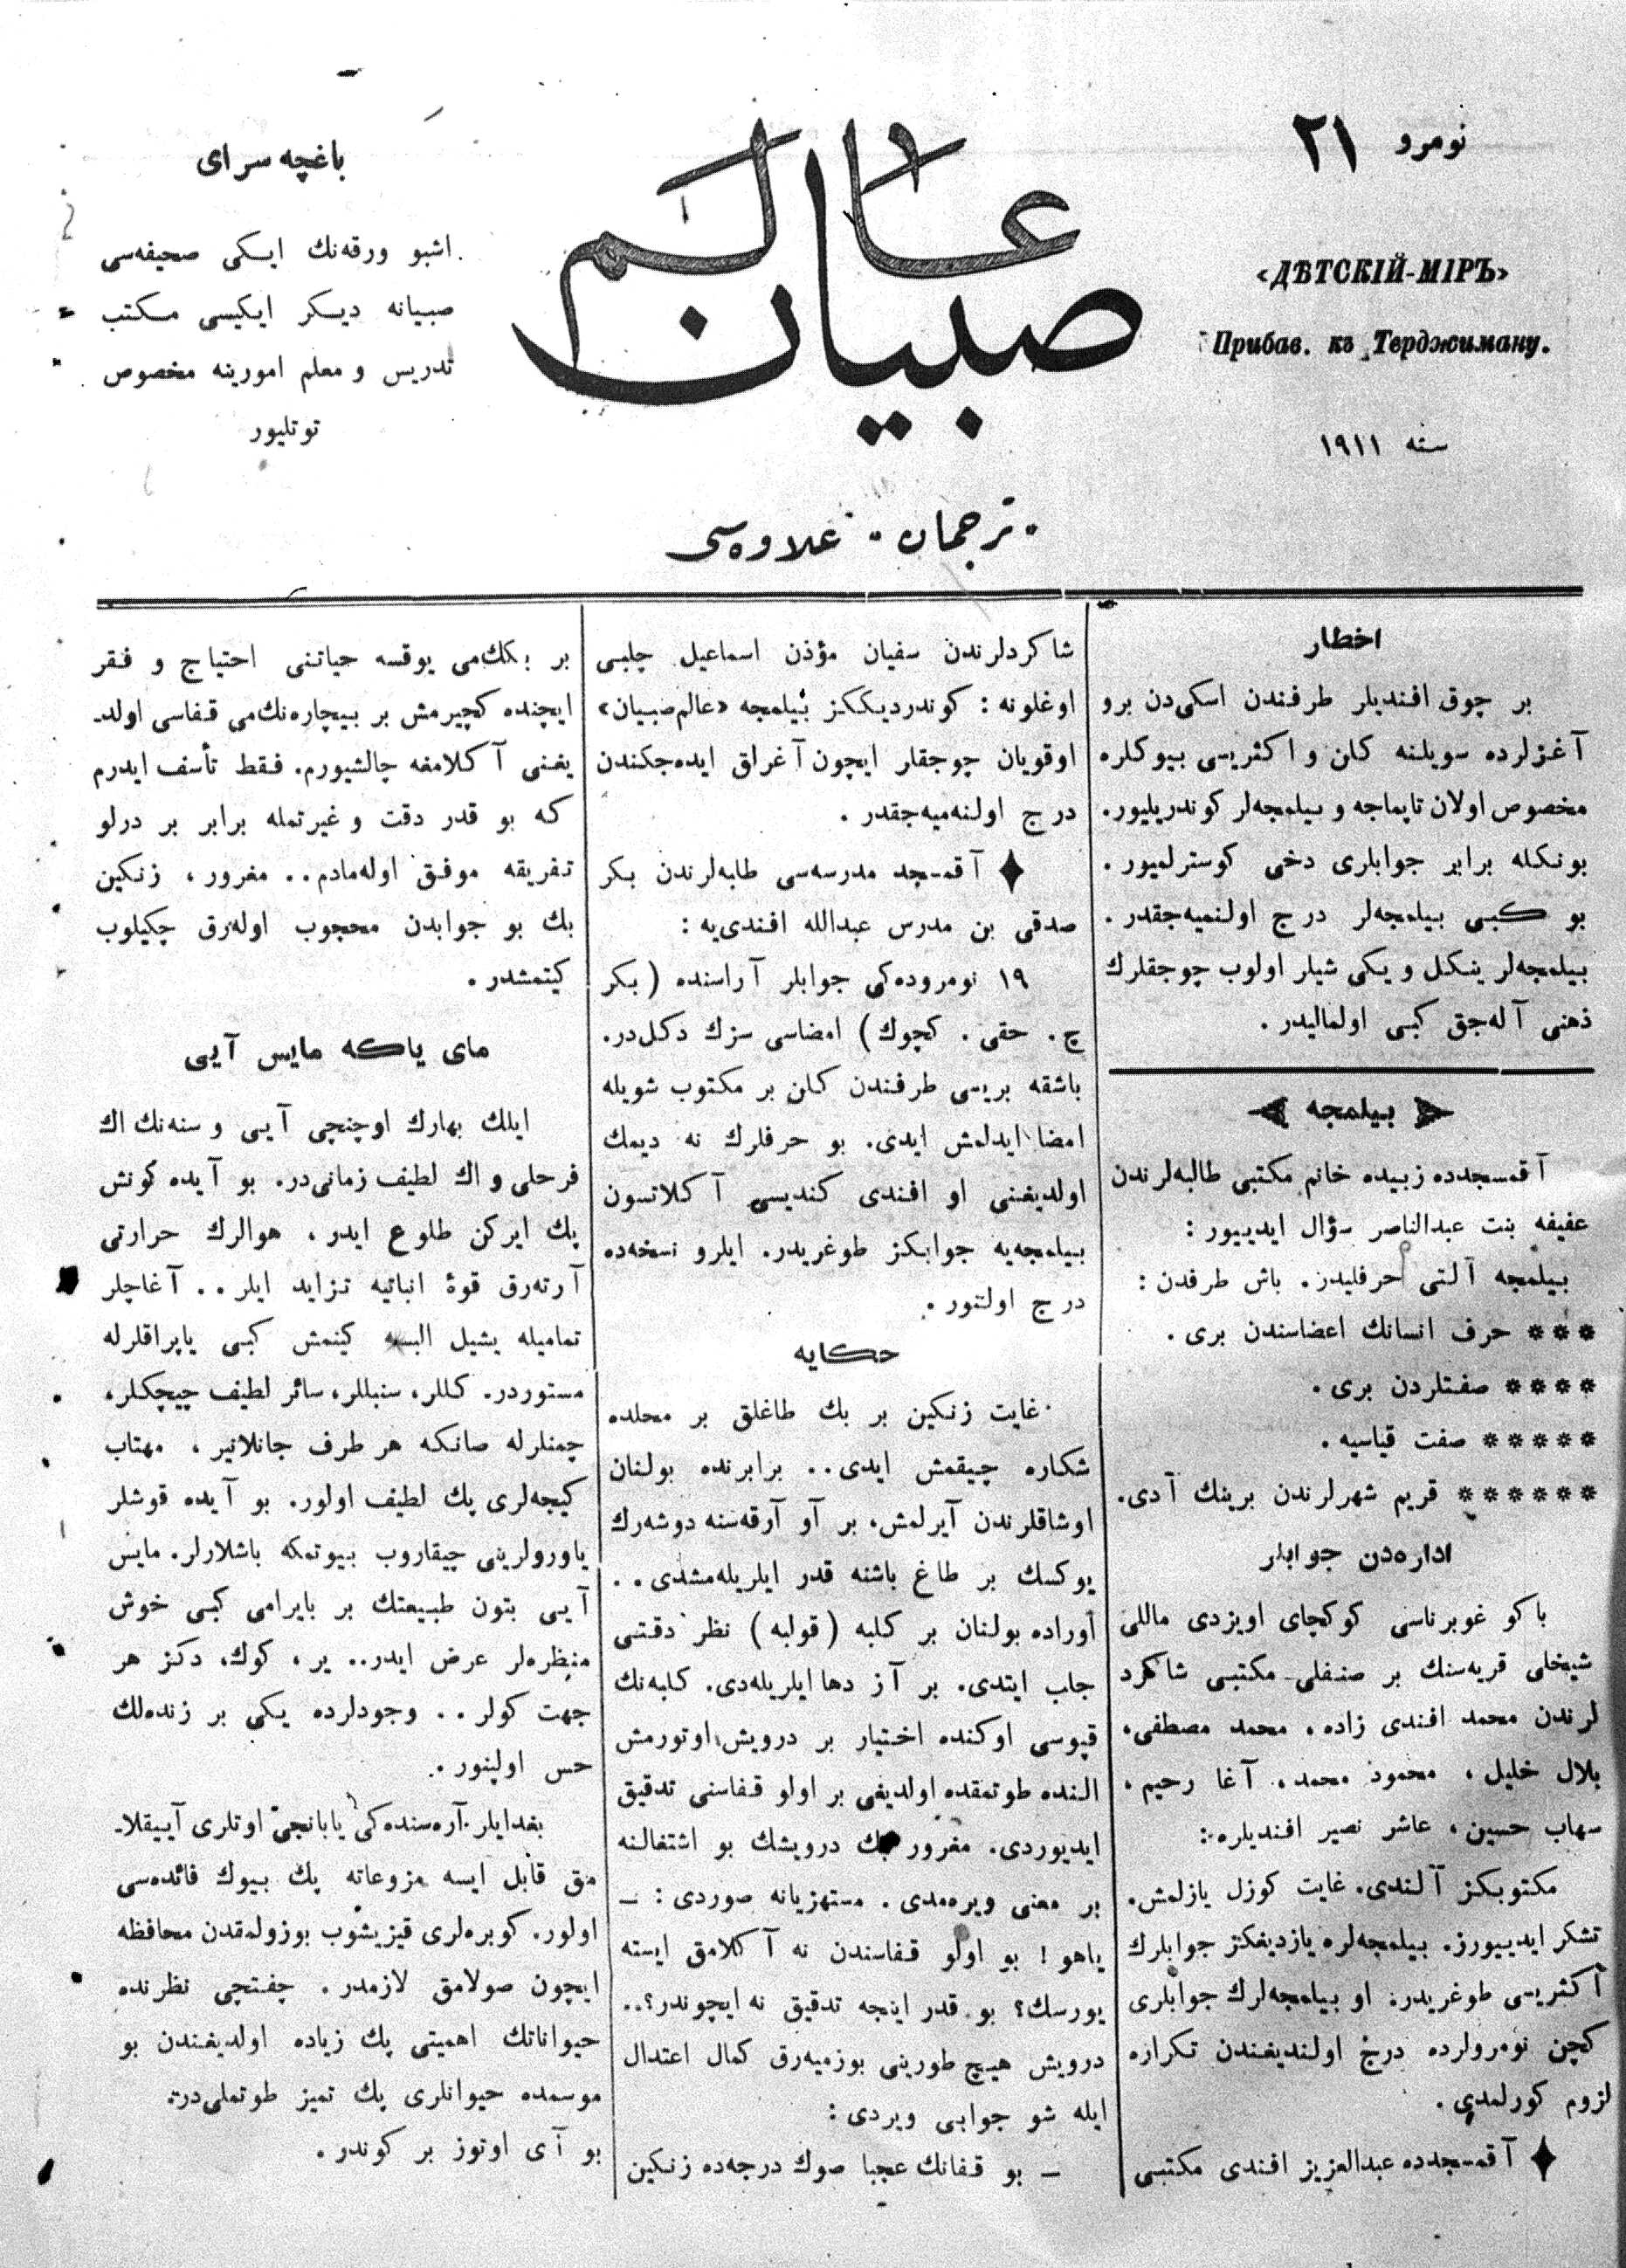 نومرو ٢١
«ДѢТСКІЙ-МІРЪ»
Прибав. къ Терджиману.
سنه ١٩١١
عالم
صبیان
«ترجمان» علاوه‌سی
باغچه سرای
اشبو ورقه‌نك ایكی صحیفه‌سی
صبیانه دیكر ایكیسی مكتب
تدریس و معلم امورینه مخصوص
توتلیور
اخطار
بر چوق افندیلر طرفندن اسكی‌دن برو
آغزلرده سویلنه كلن و اكثریسی بیوكلره
مخصوص اولان تاپماجه و بیلمجه‌لر كوندریلیور.
بونكله برابر جوابلری دخی كوسترلمیور.
بو كبی بیلمجه‌لر درج اولنمیه‌جقدر.
بیلمجه‌لر ینكل و یكی شیلر اولوب چوجقلرك
ذهنی آله‌جق كبی اولمالیدر.
بیلمجه
آقمسجدده زبیده خانم مكتبی طالبه‌لرندن
عفیفه بنت عبدالناصر سؤال ایدییور:
بیلمجه آلتی حرفلیدر. باش طرفدن:
*** حرف انسانك اعضاسندن بری.
**** صفتلردن بری.
***** صفت قیاسیه.
****** قریم شهرلرندن برینك آدی.
اداره‌دن جوابلر
باكو غوبرناسی كوكچای اویزدی ماللی
شیخلی قریه‌سنك بر صنفلی مكتبی شاكرد
لرندن محمد افندی زاده، محمد مصطفی،
بلال خلیل، محمود محمد، آغا رحیم،
سهاب حسین، عاشر نصیر افندیلره:
مكتوبكز آلندی. غایت كوزل یازلمش.
تشكر ایدییورز. بیلمجه‌لره یازدیغكز جوابلرك
اكثریسی طوغریدر. او بیلمجه‌لرك جوابلری
كچن نومرولرده درج اولندیغندن تكراره
لزوم كورلمدی.
♦ آقمسجدده عبدالعزیز افندی مكتبی
شاكردلرندن سفیان مؤذن اسماعیل چلبی
اوغلونه: كوندردیككز بیلمجه «عالم صبیان»
اوقویان چوجقلر ایچون آغراق ایده‌جكندن
درج اولنه‌میه‌جقدر.
♦ آقمسجد مدرسه‌سی طلبه‌لرندن بكر
صدقی بن مدرس عبدالله افندی‌یه:
١٩ نومروده‌كی جوابلر آراسنده (بكر
چ. حقی. كچوك) امضاسی سزك دكل‌در.
باشقه بریسی طرفندن كلن بر مكتوب شویله
امضا ایدلمش ایدی. بو حرفلرك نه دیمك
اولدیغنی او افندی كندیسی آكلاتسون
بیلمجه‌یه جوابكز طوغریدر. ایلرو نسخه‌ده
درج اولنور.
حكایه
غایت زنكین بر بك طاغلق بر محلده
شكاره چیقمش ایدی.. برابرنده بولنان
اوشاقلرندن آیرلمش، بر آو آرقه‌سنه دوشه‌رك
یوكسك بر طاغ باشنه قدر ایلریله‌مشدی..
اوراده بولنان بر كلبه (قولبه) نظر دقتی
جلب ایتدی. بر آز دها ایلریله‌دی. كلبه‌نك
قپوسی اوكنده اختیار بر درویش اوتورمش
النده طوتمقده اولدیغی بر اولو قفاسنی تدقیق
ایدیوردی. مغرور بك درویشك بو اشتغالنه
بر معنی ویره‌مدی. مستهزیانه صوردی: —
یاهو! بو اولو قفاسندن نه آكلامق ایسته
یورسك؟ بو قدر اینجه تدقیق نه ایچوندر؟..
درویش هیچ طورینی بوزمیه‌رق كمال اعتدال
ایله شو جوابی ویردی:
— بو قفانك عجبا صوك درجه‌ده زنكین
بر بكك‌می یوقسه حیاتنی احتیاج و فقر
ایچنده كچیرمش بر بیچاره‌نك‌می قفاسی اولد-
یغنی آكلامغه چالشیورم. فقط تأسف ایدرم
كه بو قدر دقت و غیرتمله برابر بر درلو
تفریقه موفق اوله‌مادم.. مغرور، زنكین
بك بو جوابدن محجوب اوله‌رق چكیلوب
كیتمشدر.
مای یاكه مایس آیی
ایلك بهارك اوچنچی آیی و سنه‌نك اك
فرحلی و اك لطیف زمانی‌در. بو آیده كونش
پك ایركن طلوع ایدر، هوالرك حرارتی
آرته‌رق قوۀ انباتیه تزاید ایلر.. آغاچلر
تمامیله یشیل البسه كینمش كبی یاپراقلرله
مستوردر. كللر، سنبللر، سائر لطیف چیچكلر،
چمنلرله صانكه هر طرف جانلانیر، مهتاب
كیجه‌لری پك لطیف اولور. بو آیده قوشلر
یاورولرینی چیقاروب بیوتمكه باشلارلر. مایس
آیی بتون طبیعتك بر بایرامی كبی خوش
منظره‌لر عرض ایدر.. یر، كوك، دكز هر
جهت كولر.. وجودلرده یكی بر زنده‌لك
حس اولینور.
بغدایلر آره‌سنده‌كی یابانجی اوتلری آییقلا-
مق قابل ایسه مزوعاته پك بیوك فائده‌سی
اولور. كوبره‌لری قیزیشوب بوزولمقدن محافظه
ایچون صولامق لازمدر. چفتچی نظرنده
حیواناتك اهمیتی پك زیاده اولدیغندن بو
موسمده حیوانلری پك تمیز طوتملی‌در.
بو آی اوتوز بر كوندر.